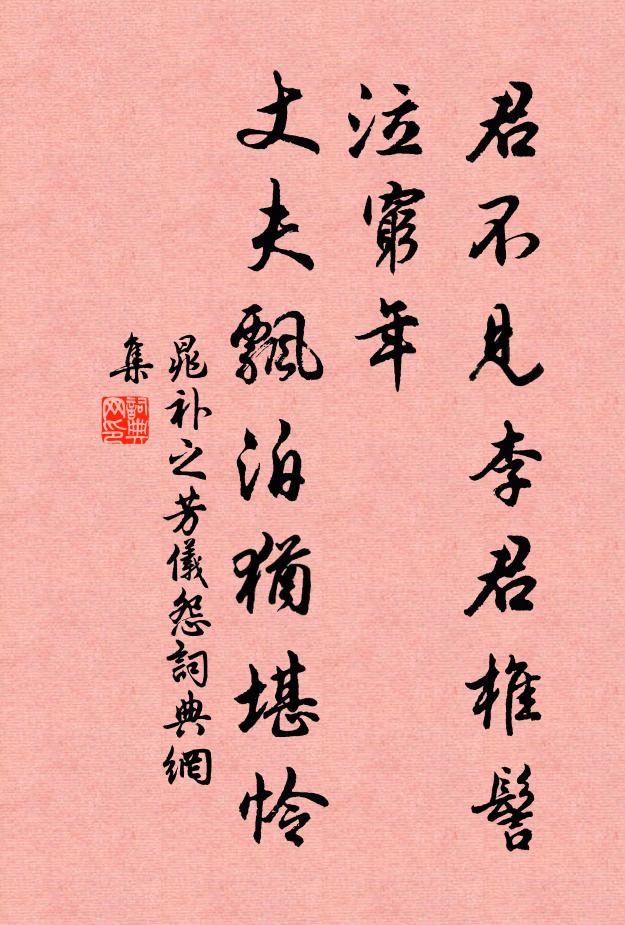 君不見李君椎髻
泣窮年
丈夫飄泊猶堪怜
晁补之芳儀怨詞典網
集
詞典
网印